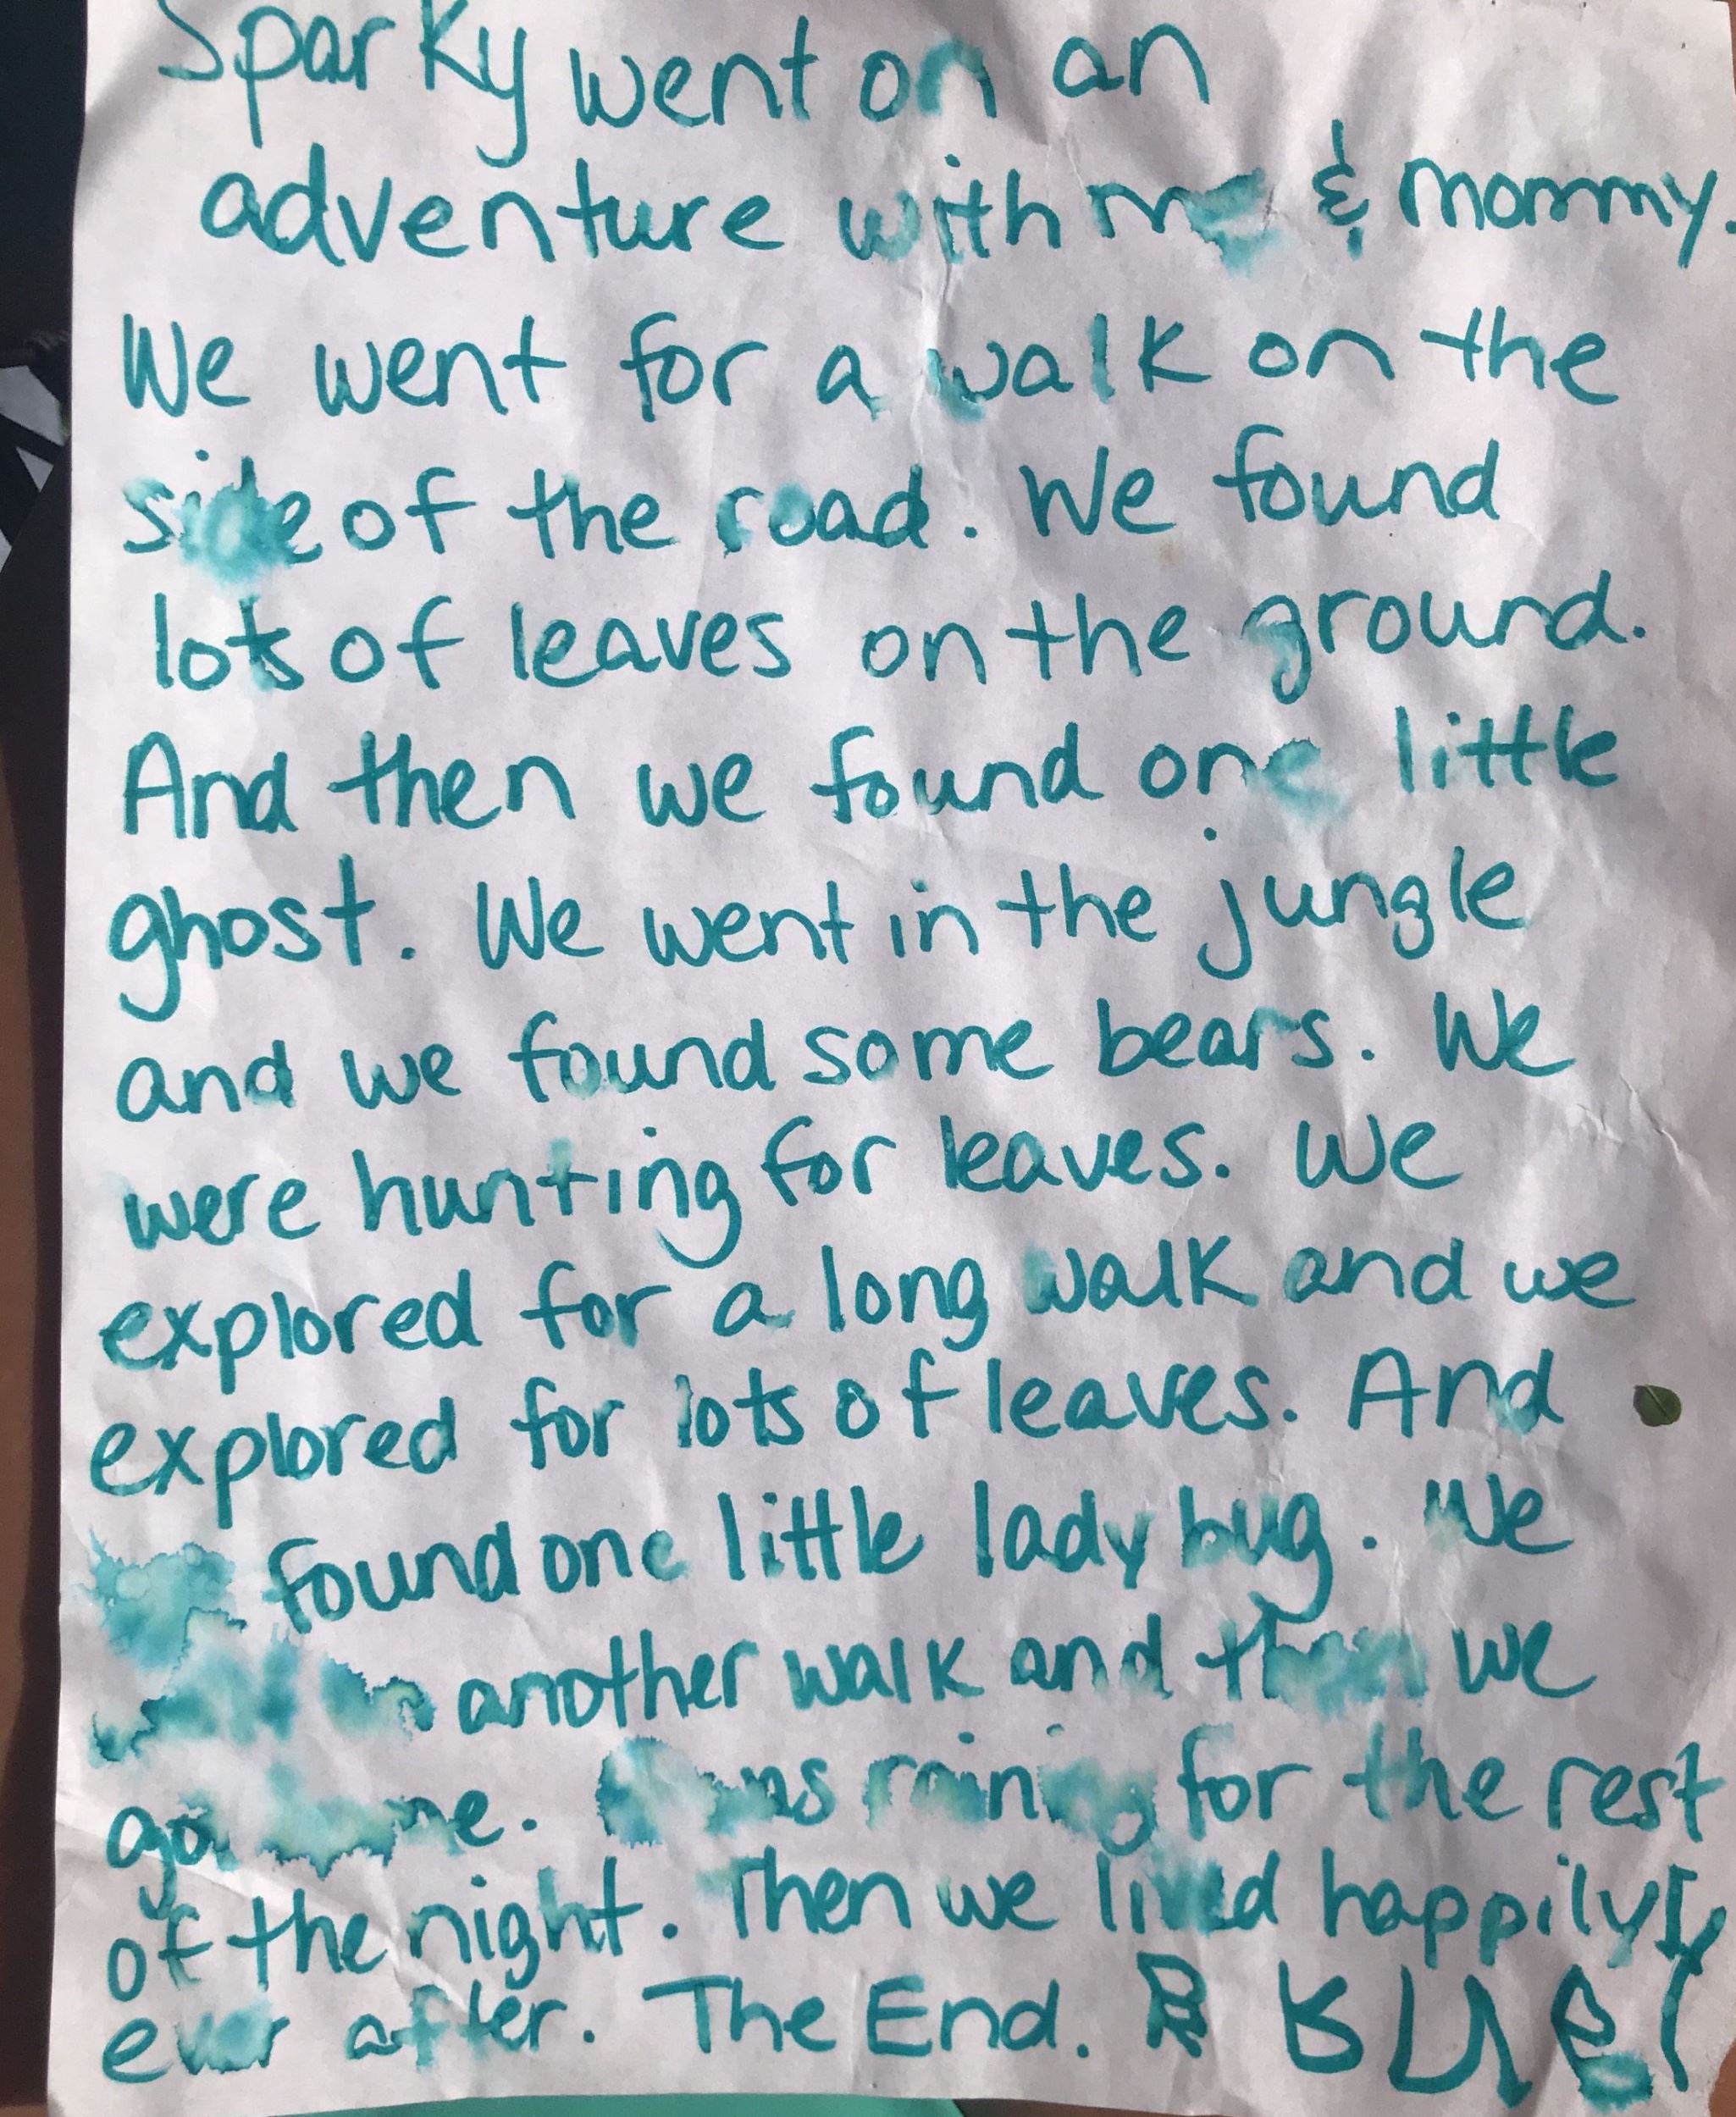 Sparky went on an
adventure with me & mommy.
We went for a walk on the
side of the road. We found
lots of leaves on the ground.
And then we found one little
ghost. We went in the jungle
and we found some bears. We
were hunting for leaves. We
explored for a long walk and we
explored for lots of leaves. And
found one little lady bug. We
another walk and then we
was raining for the rest
of the night. Then we lived happily
ever after. The End.